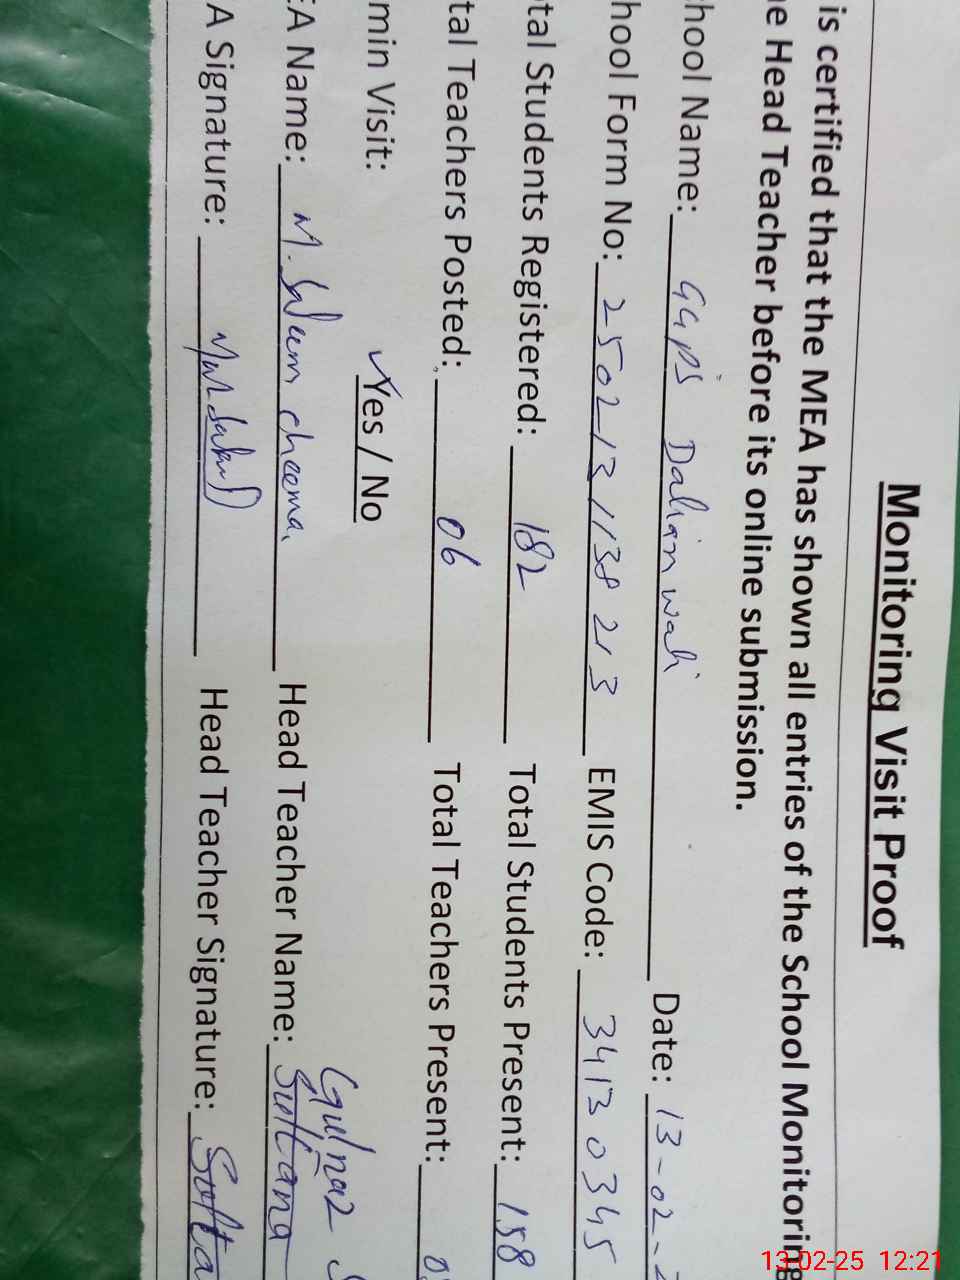 Monitoring Visit Proof
is certified that the MEA has shown all entries of the School Monitoring
e Head Teacher before its online submission.
hool Name: GGPS Dahian wali Date: 13-02-2
hool Form No: 2502131138213 EMIS Code: 34130345
tal Students Registered: 182 Total Students Present: 158
tal Teachers Posted: 06 Total Teachers Present: 0
min Visit: ✓Yes / No
EA Name: M. Saleem cheema Head Teacher Name: Gulnaz Sultana
A Signature: Head Teacher Signature: Sulta
13-02-25 12:21